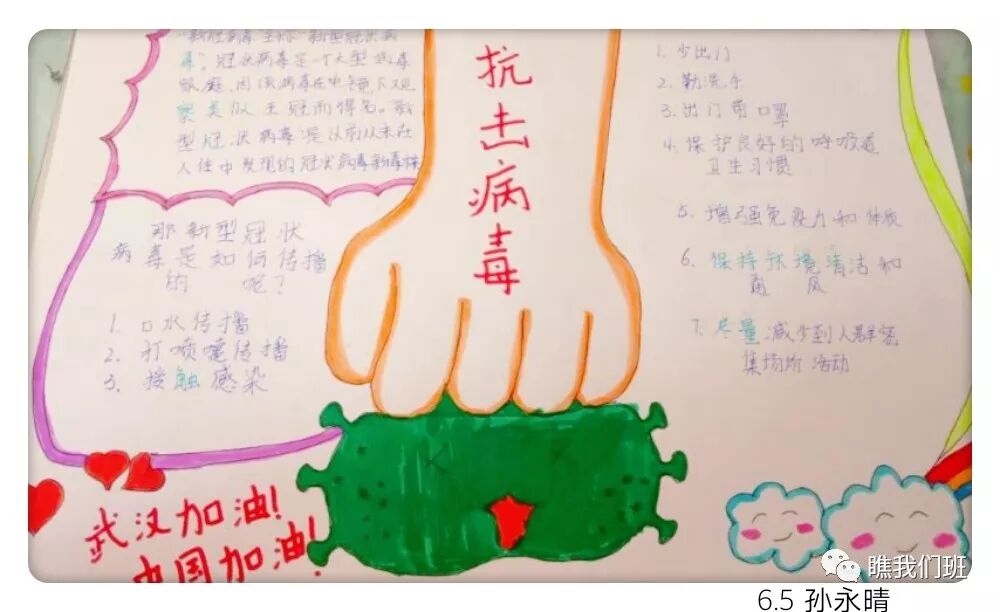 "新冠病毒全称"新型冠状病
毒,冠状病毒是一个大型病毒
家庭,因该病毒在电镜下观
察类似王冠而得名。新
型冠状病毒是以前从未在
人体中发现的冠状病毒新毒株
那新型冠状
病毒是如何传播
的 呢?
1. 口水传播
2. 打喷嚏传播
3. 接触感染
抗击病毒
1. 少出门
2. 勤洗手
3. 出门带口罩
4. 保护良好的呼吸道
卫生习惯
5. 增强免疫力和体质
6. 保持环境清洁和
通 风
7. 尽量减少到人群密
集场所活动
武汉加油!
中国加油!
瞧我们班
6.5 孙永晴